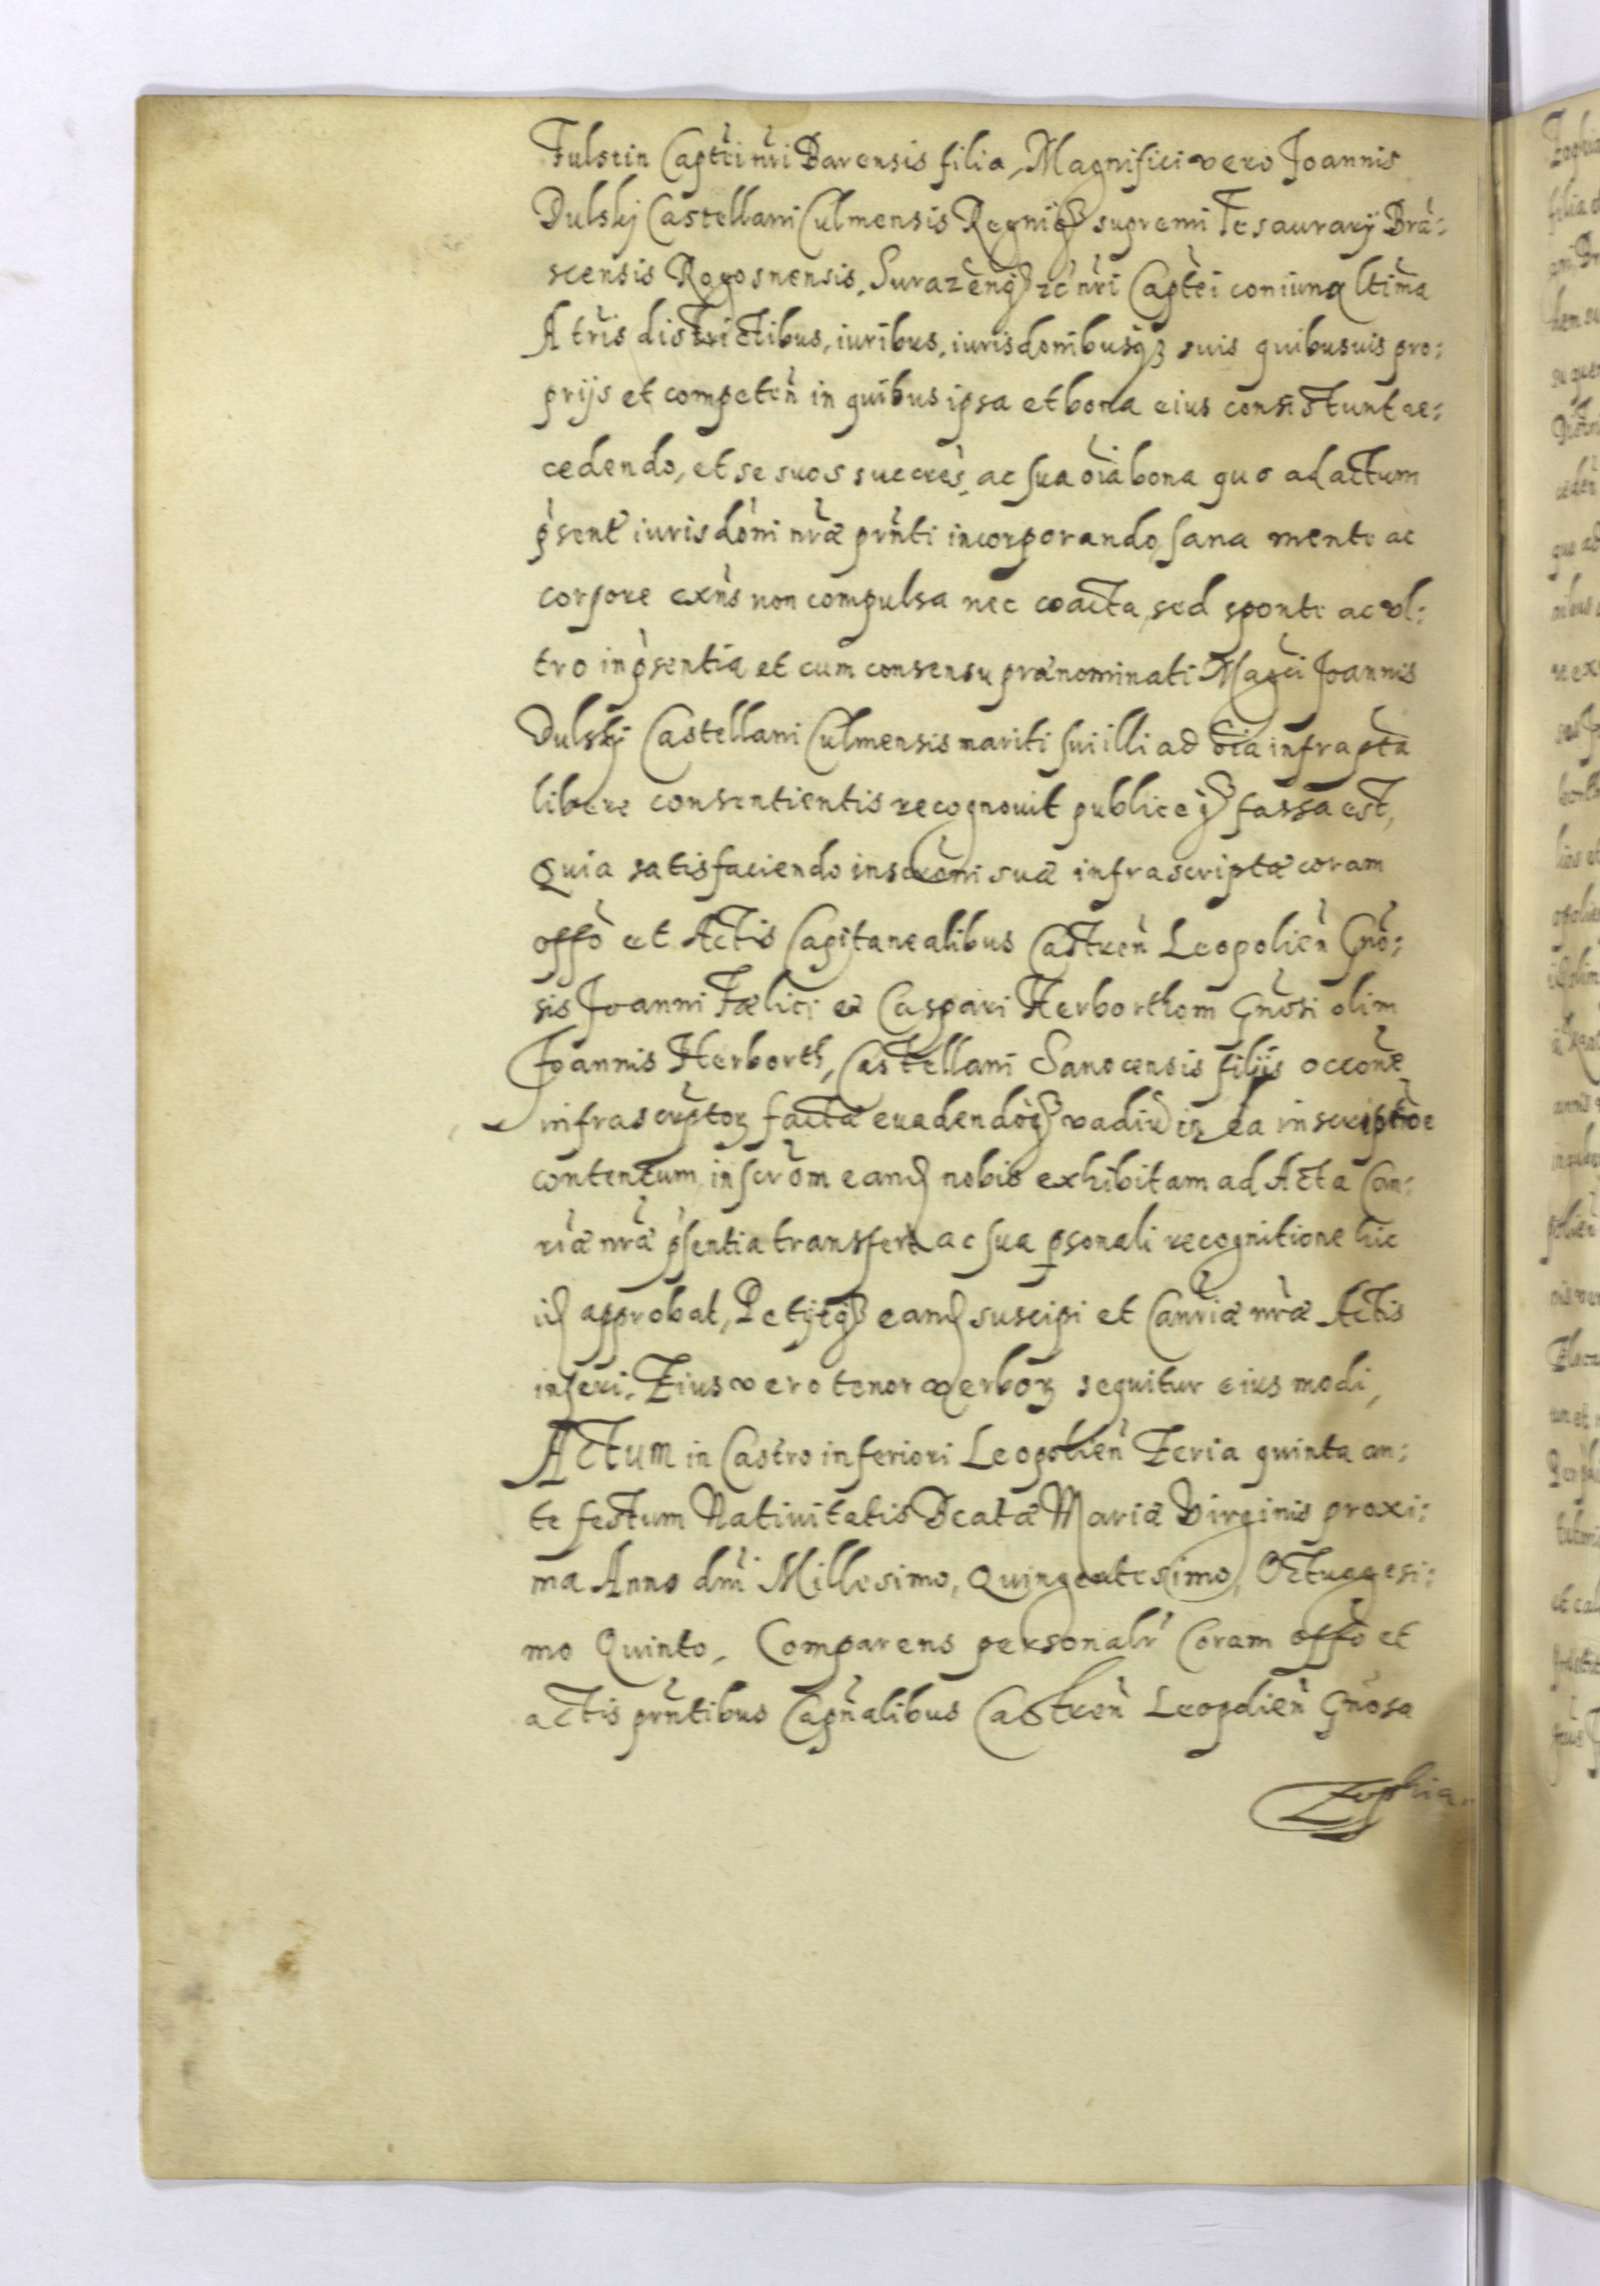 Fulstin Captei nri Barensis filia, Magnifici vero Joannis
Dulskj Castellani Culmensis Regniq3 supremi Tesaurarij Bra:
scensis Rogosnensis, Surazenq3 zc nri Captei coniunx ltima
A tris districtibus, iuribus, iurisdonibusq3 suis quibusuis pro:
prijs et competen in quibus ipsa et bona eius consistunt re:
cedendo, et se suos succres, ac sua oia bona quo ad actum
psente iurisdoni nræ prnti incorporando, sana mente ac
corpore exns non compulsa nec coacta, sed sponte ac vl:
tro in psentia et cum consensu prænominati Magci Joannis
Dulskj Castellani Culmensis mariti sui illi ad oia infrapta
libere consentientis recognouit publiceq3 fassa est,
Quia satisfaciendo inscroni suæ infrascriptæ coram
offo et Actis Capitanealibus Castren Leopolien Gno:
sis Joanni Fælici et Caspari Herborthom Gnosi olim
Joannis Herborth, Castellani Sanocensis filijs occone
infrascriptoz factæ euadendoq3 vadiu in ea inscriptioe
contentum, inscrom eand nobis exhibitam ad Acta Can:
riæ nræ psentia transfert ac sua psonali recognitione hic
id approbat, Petijtq3 eand suscipi et Canriæ nræ Actis
inseri, Eius vero tenor verboz sequitur eiusmodi,
Actum in Castro inferiori Leopolien Feria quinta an:
te festum Natiuitatis Beatæ Mariæ Virginis proxi:
ma Anno dni Millesimo, Quingentesimo, Octuagesi:
mo Quinto, Comparens personalr Coram offo et
actis prntibus Capnalibus Castren Leopolien Gnosa
Zophia